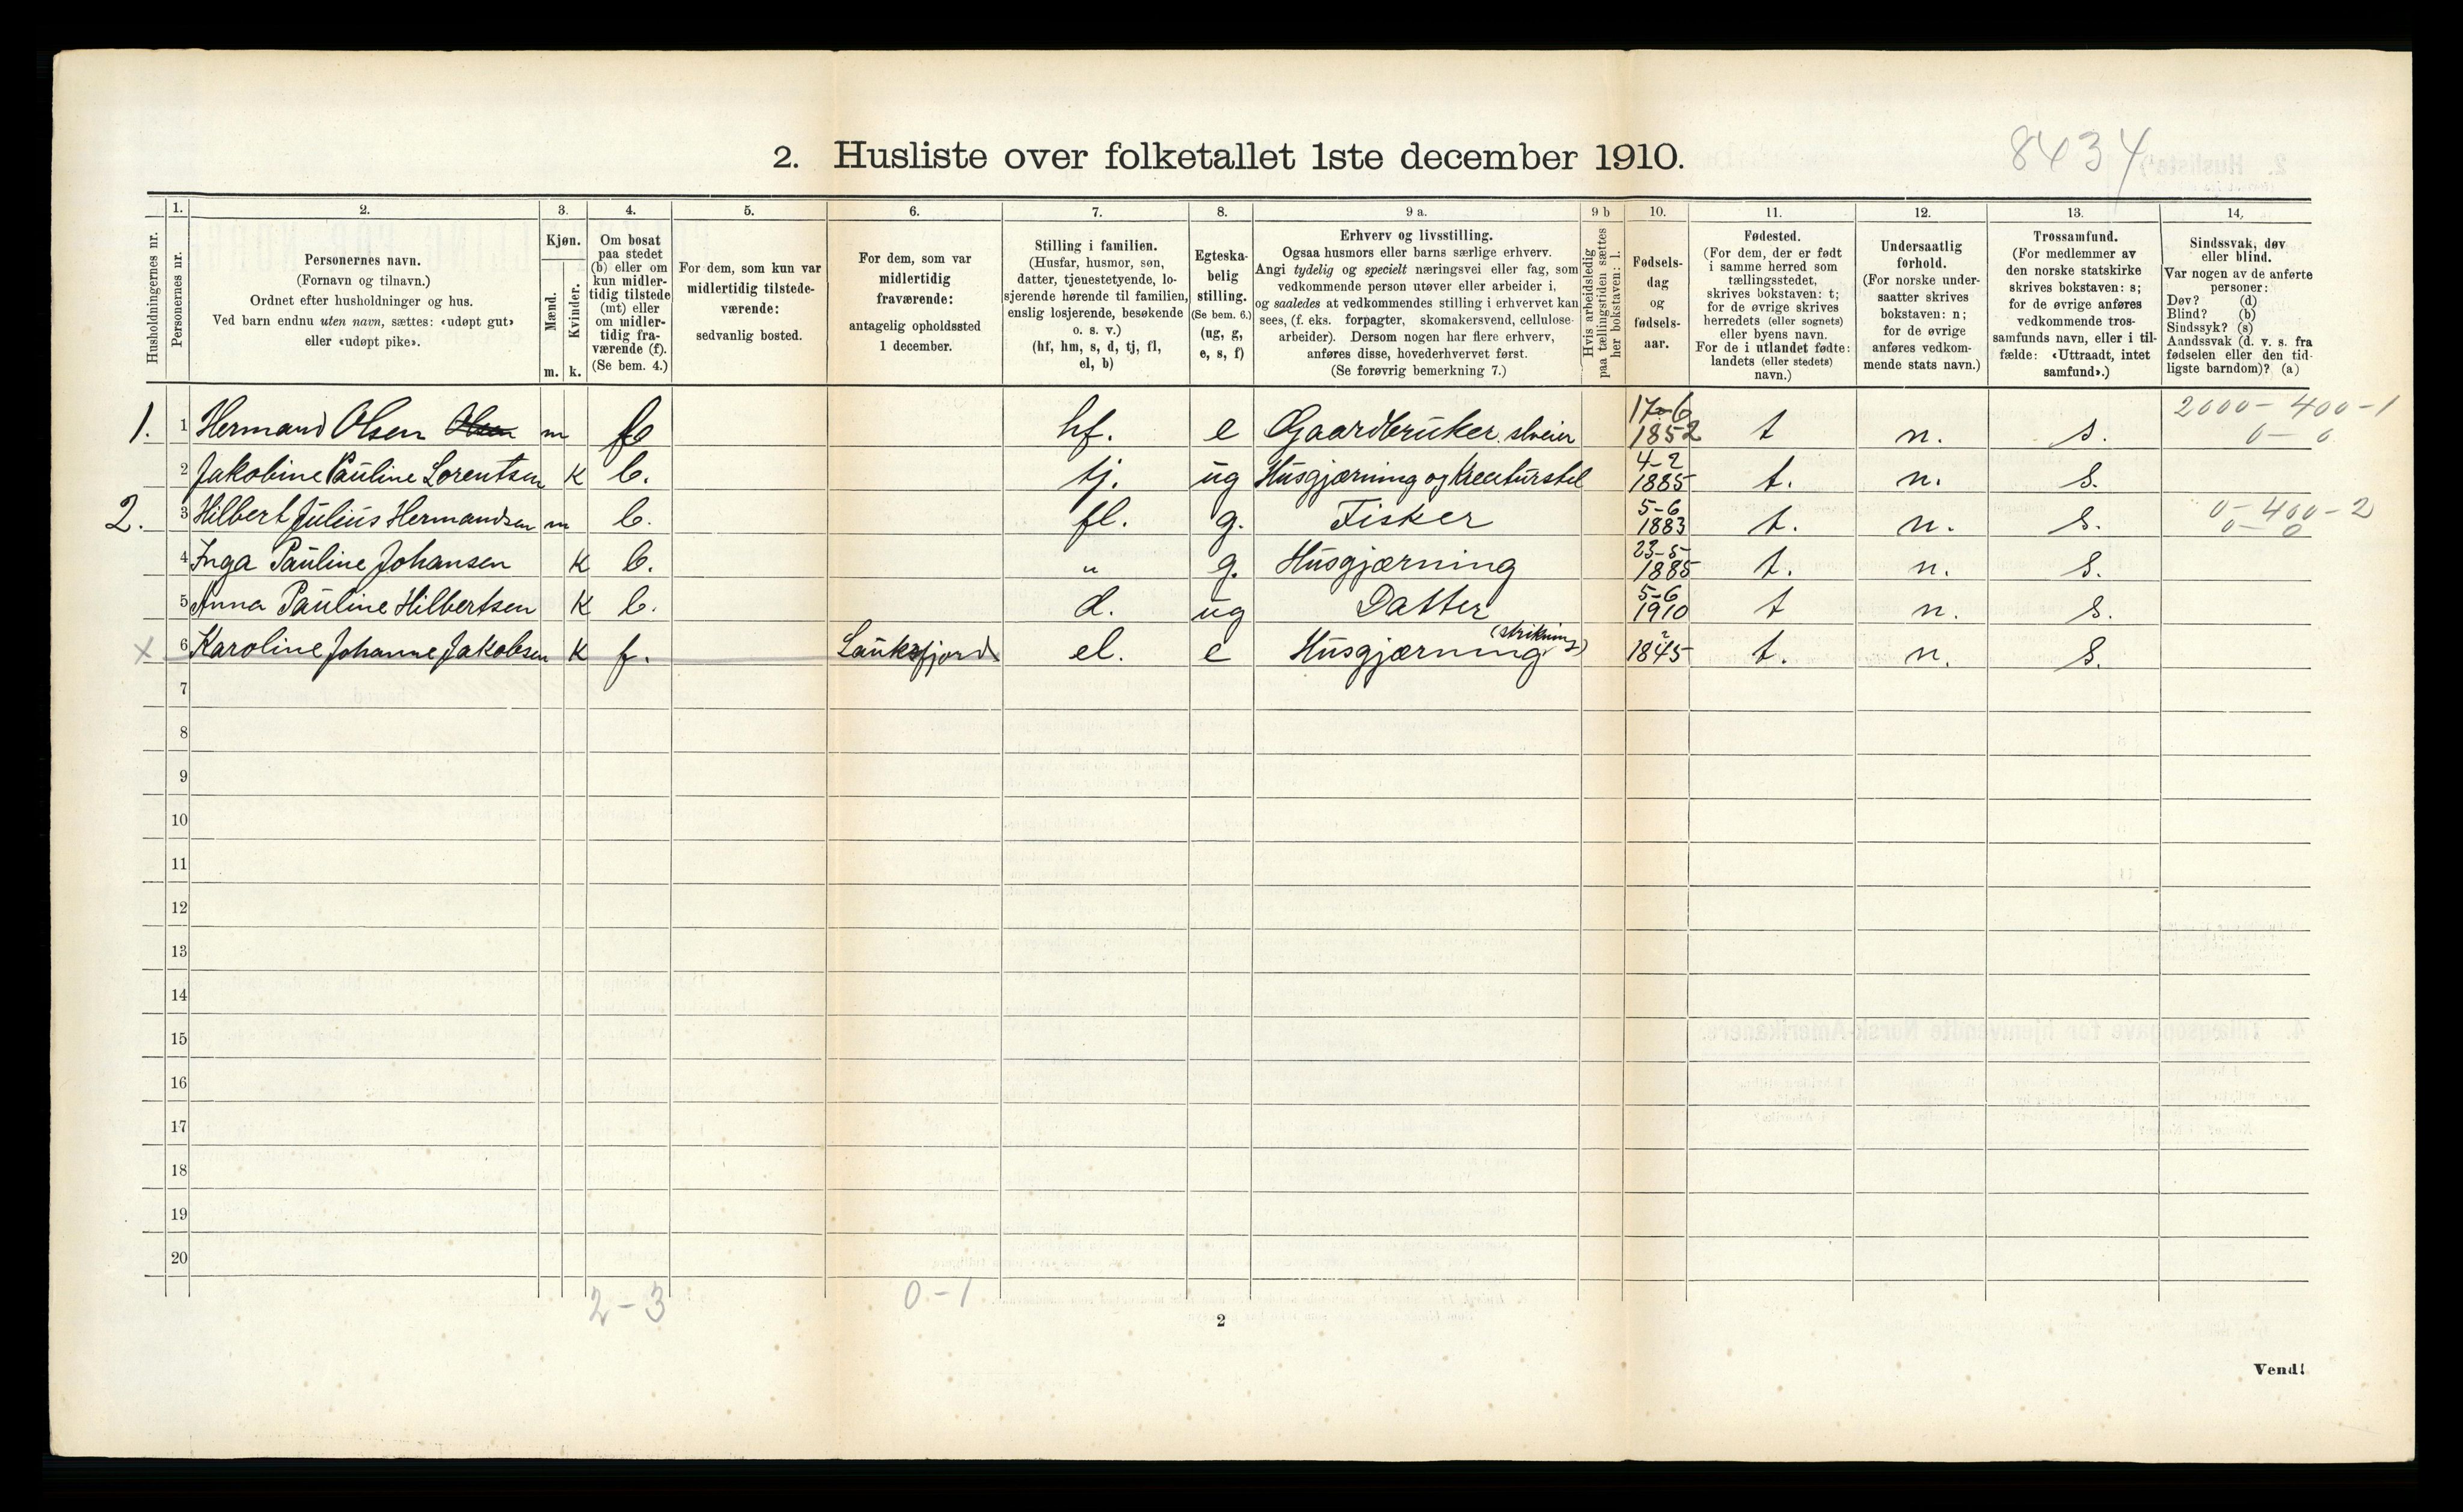 2. Husliste over folketallet 1ste december 1910.
8434
Husholdningernes nr.
1.
Personernes nr.
2.
Personernes navn.
(Fornavn og tilnavn.)
Ordnet efter husholdninger og hus.
Ved barn endnu uten navn, sættes: «udøpt gut»
eller «udøpt pike».
3.
Kjøn.
Mænd.
Kvinder.
m. k.
4.
Om bosat
paa stedet
(b) eller om
kun midler-
tidig tilstede
(mt) eller
om midler-
tidig fra-
værende (f).
(Se bem. 4.)
5.
For dem, som kun var
midlertidig tilstede-
værende:
sedvanlig bosted.
6.
For dem, som var
midlertidig
fraværende:
antagelig opholdssted
1 december.
7.
Stilling i familien.
(Husfar, husmor, søn,
datter, tjenestetyende, lo-
sjerende hørende til familien,
enslig losjerende, besøkende
o. s. v.)
(hf, hm, s, d, tj, fl,
el, b)
8.
Egteska-
belig
stilling.
(Se bem. 6.)
(ug, g,
e, s, f)
9 a.
Erhverv og livsstilling.
Ogsaa husmors eller barns særlige erhverv.
Angi tydelig og specielt næringsvei eller fag, som
vedkommende person utøver eller arbeider i,
og saaledes at vedkommendes stilling i erhvervet kan
sees, (f. eks. forpagter, skomakersvend, cellulose-
arbeider). Dersom nogen har flere erhverv,
anføres disse, hovederhvervet først.
(Se forøvrig bemerkning 7.)
9 b
Hvis arbeidsledig
paa tællingstiden sættes
her bokstaven: l.
10.
Fødsels-
dag
og
fødsels-
aar.
11.
Fødested.
(For dem, der er født
i samme herred som
tællingsstedet,
skrives bokstaven: t;
for de øvrige skrives
herredets (eller sognets)
eller byens navn.
For de i utlandet fødte:
landets (eller stedets)
navn.)
12.
Undersaatlig
forhold.
(For norske under-
saatter skrives
bokstaven: n;
for de øvrige
anføres vedkom-
mende stats navn.)
13.
Trossamfund.
(For medlemmer av
den norske statskirke
skrives bokstaven: s;
for de øvrige anføres
vedkommende tros-
samfunds navn, eller i til-
fælde: «Uttraadt, intet
samfund».)
14,
Sindssvak, døv
eller blind.
Var nogen av de anførte
personer:
Døv? (d)
Blind? (b)
Sindssyk? (s)
Aandssvak (d. v. s. fra
fødselen eller den tid-
ligste barndom)? (a)
1. 1 Hermand Olsen Olsen m hf. e Gaardbruker. slveier 17-6 1852 t n. s. 2000 - 400 - 1
0 - 0
2 Jakobine Pauline Lorentsen K b. tj. ug Husgjærning og Kreaturstel 4-2 1885 t. n. s.
2. 3 Hilbert Julius Hermandsen m b. fl. g. Fisker 5-6 1883 t. n. s. 0 - 400 - 2
0 - 0
4 Inga Pauline Johansen K b. " g. Husgjærning 23-5- 1885 t. n. s.
5 Anna Pauline Hilbertsen K b. d. ug Datter 5-6 1910 t n. s.
x 6 Karoline Johanne Jakobsen K f. Lauksfjord el. e Husgjærning (strikning) ? 1845 t. n. s.
7
8
9
10
11
12
13
14
15
16
17
18
19
20
2 - 3
0 - 1
2
Vend!